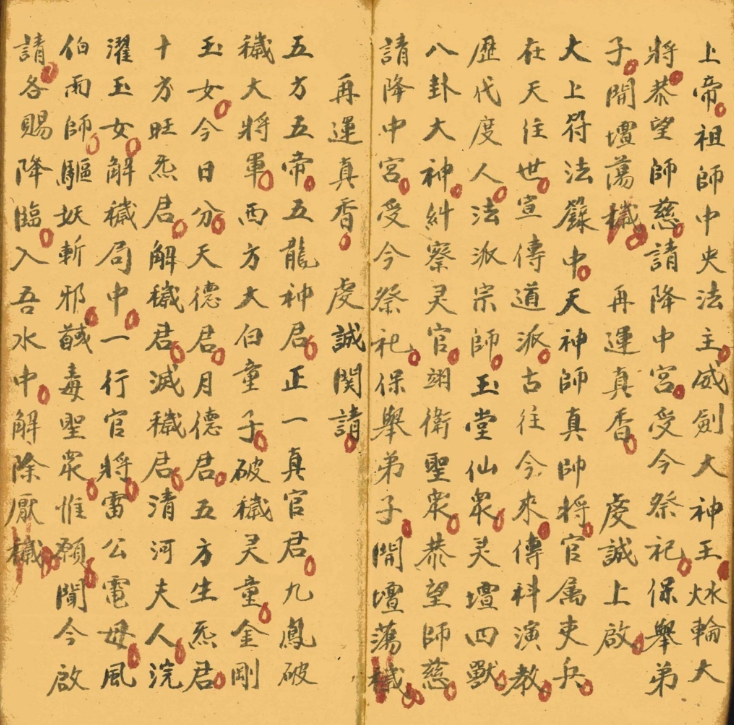 上帝祖師中央法主威劍大神王烌輪大
將恭望師慈請降中宮受今祭祀保舉弟
子開壇蕩穢 再運真香 虔誠上啟
太上符法籙中天神師真帥將官属吏兵
在天往世宣傳道派古往今來傳科演教
歷代度人法派宗師玉堂仙眾灵壇四獸
八卦大神糾察灵官翊衛聖眾恭望師慈
請降中宮受今祭祀保舉弟子開壇蕩穢
再運真香 虔誠関請
五方五帝五龍神君正一真官君九鳳破
穢大將軍西方太白童子破穢灵童金剛
玉女今日分天德君月德君五方生炁君
十方旺炁君解穢君滅穢君清河夫人浣
濯玉女解穢局中一行官將雷公電母風
伯雨師驅妖斬邪馘毒聖眾惟願聞今啟
請各賜降臨入吾水中解除厭穢